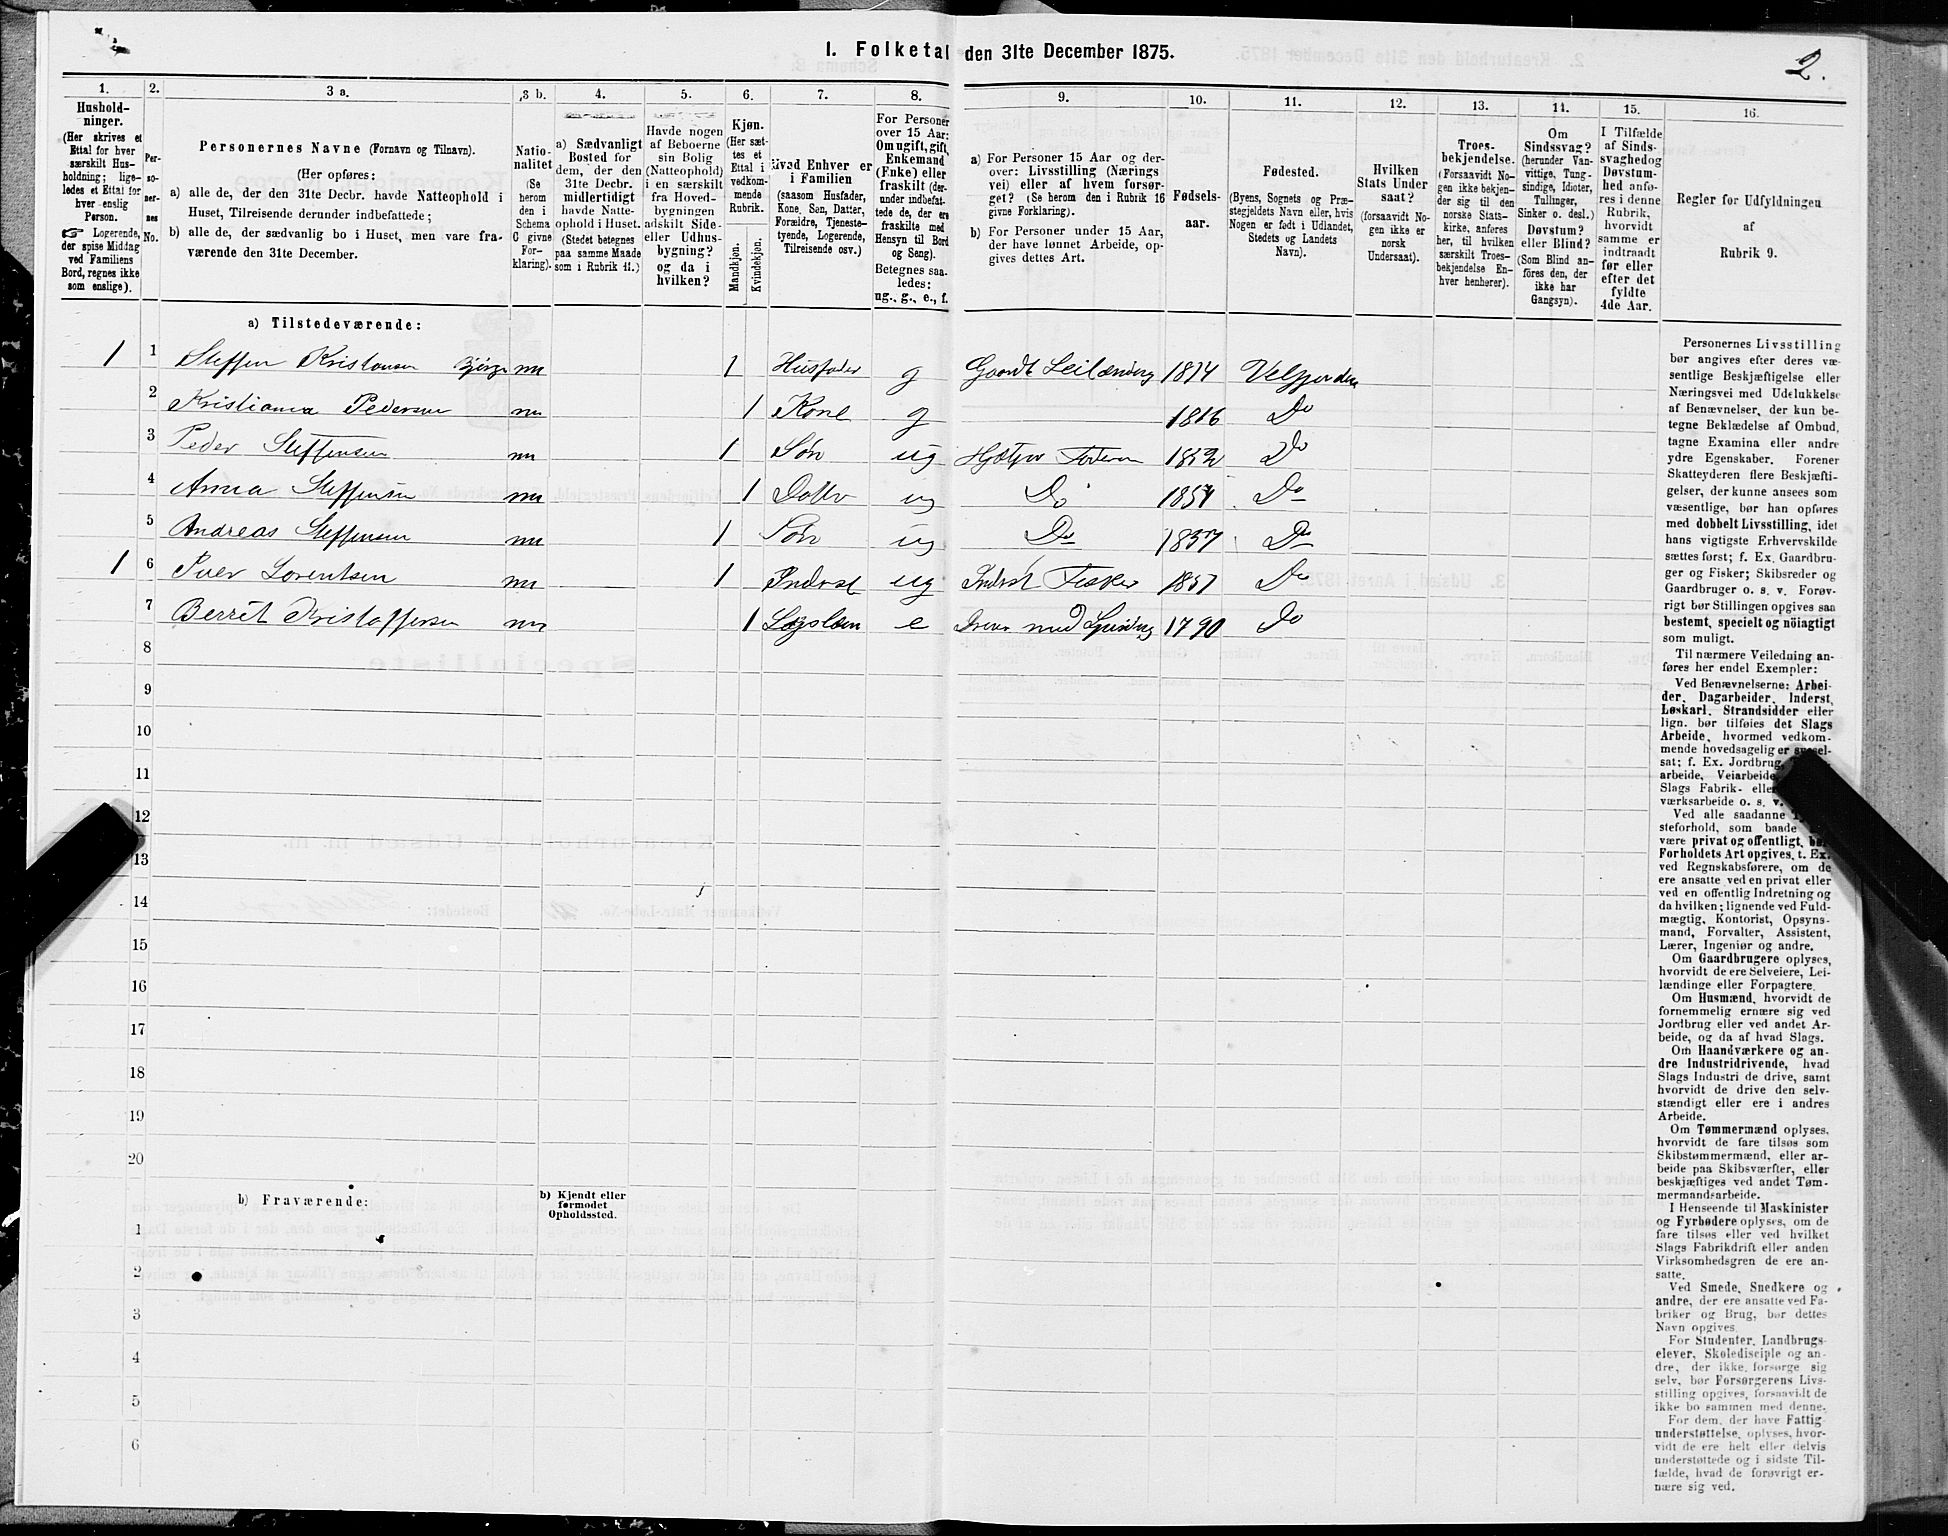 I. Folketal den 31te December 1875.
2.
1.
Hushold-
ninger.
(Her skrives et
Ettal for hver
særskilt Hus-
holdning; lige-
ledes et Ettal for
hver enslig
Person.
☞ Logerende,
der spise Middag
ved Familiens
Bord, regnes ikke
som enslige).
2.
Per-
so-
ner-
nes
No.
3 a.
Personernes Navne (Fornavn og Tilnavn).
(Her opføres:
a) alle de, der den 31te Decbr. havde Natteophold i
Huset, Tilreisende derunder indbefattede;
b) alle de, der sædvanlig bo i Huset, men vare fra-
værende den 31te December.
3 b.
Natio-
nalitet
(Se
herom
den i
Schema
C givne
For-
klaring).
4.
a) Sædvanligt
Bosted for
dem, der den
31te Decbr.
midlertidigt
havde Natte-
ophold i Huset.
(Stedet betegnes
paa samme Maade
som i Rubrik 11.)
5.
Havde nogen
af Beboerne
sin Bolig
(Natteophold)
i en særskilt
fra Hoved-
bygningen
adskilt Side-
eller Udhus-
bygning?
og da i
hvilken?
6.
Kjøn.
(Her sæt-
tes et
Ettal i
vedkom-
mende
Rubrik.
Mandkjøn.
Kvindekjøn.
7.
Hvad Enhver er
i Familien
(saasom Husfader,
Kone, Søn, Datter,
Forældre, Tjeneste-
tyende, Logerende,
Tilreisende osv.)
8.
For Personer
over 15 Aar:
Om ugift, gift,
Enkemand
(Enke) eller
fraskilt (der-
under indbefat-
tede de, der ere
fraskilte med
Hensyn til Bord
og Seng).
Betegnes saa-
ledes:
ug., g., e., f.
9.
a) For Personer 15 Aar og der-
over: Livsstilling (Nærings
vei) eller af hvem forsør-
get? (Se herom den i Rubrik 16
givne Forklaring).
b) For Personer under 15 Aar,
der have lønnet Arbeide, op-
gives dettes Art.
10.
Fødsels-
aar.
11.
Fødested.
(Byens, Sognets og Præ-
stegjeldets Navn eller, hvis
Nogen er født i Udlandet,
Stedets og Landets
Navn).
12.
Hvilken
Stats Under
saat?
(forsaavidt No-
gen ikke er
norsk
Undersaat).
13.
Troes-
bekjendelse.
(Forsaavidt No-
gen ikke bekjen-
der sig til den
norske Stats-
kirke, anføres
her, til hvilken
særskilt Troes-
bekjendelse En-
hver henhører).
14.
Om
Sindssvag?
(herunder Van-
vittige, Tung-
sindige, Idioter,
Tullinger,
Sinker o. desl.)
Døvstum?
eller Blind?
(Som Blind an-
føres den, der
ikke har
Gangsyn).
15.
I Tilfælde
af Sinds-
svaghedog
Døvstum-
hed anfø-
res i denne
Rubrik,
hvorvidt
samme er
indtraadt
før eller
efter det
fyldte
4de Aar.
16.
Regler for Udfyldningen
af
Rubrik 9.
a) Tilstedeværende:
1 1 Steffen Kristansen Bjørge nn 1 Husfader g Gaardb Leilænding 1814 Velfjorden
2 Kristianna Pedersen nn 1 Kone g 1816 Do
3 Peder Steffensen nn 1 Søn ug Hjælper Faderen 1852 Do
4 Anna Steffensen nn 1 Datter ug Do 1854 Do
5 Andreas Steffensen nn 1 Søn ug Do 1857 Do
1 6 Iver Lorentsen nn 1 Inderst ug Inderst Fisker 1857 Do
7 Berret Kristoffersen nn 1 Lægslem e med 1790 Do
8
9
10
11
12
13
14
15
16
17
18
19
20
b) Fraværende:
b) Kjendt eller
formodet
Opholdssted.
1
2
3
4
5
6
Personernes Livsstilling
bør angives efter deres væ-
sentlige Beskjæftigelse eller
Næringsvei med Udelukkelse
af Benævnelser, der kun be-
tegne Beklædelse af Ombud,
tagne Examina eller andre
ydre Egenskaber. Forener
Skatteyderen flere Beskjæfti-
gelser, der kunne ansees som
væsentlige, bør han opføres
med dobbelt Livsstilling, idet
hans vigtigste Erhvervskilde
sættes først; f. Ex. Gaardbru-
ger og Fisker; Skibsreder og
Gaardbruger o. s. v. Forøv-
rigt bør Stillingen opgives saa
bestemt, specielt og nøiagtigt
som muligt.
Til nærmere Veiledning an-
føres her endel Exempler:
Ved Benævnelserne: Arbei-
der, Dagarbeider, Inderst,
Løskarl, Strandsidder eller
lign. bør tilføies det Slags
Arbeide, hvormed vedkom-
mende hovedsagelig er syssel-
sat; f. Ex. Jordbrug,
arbeide, Veiarbeide,
Slags Fabrik- eller
værksarbeide o. s. v.
Ved alle saadanne
steforhold, som baade
være privat og offentligt, bør
Forholdets Art opgives, t. Ex.
ved Regnskabsførere, om de
ere ansatte ved en privat eller
ved en offentlig Indretning og
da hvilken; lignende ved Fuld-
mægtig, Kontorist, Opsyns-
mand, Forvalter, Assistent,
Lærer, Ingeniør og andre.
Om Gaardbrugere oplyses,
hvorvidt de ere Selveiere, Lei-
lændinge eller Forpagtere.
Om Husmænd, hvorvidt de
fornemmelig ernære sig ved
Jordbrug eller ved andet Ar-
beide, og da af hvad Slags.
Om Haandværkere og an-
dre Industridrivende, hvad
Slags Industri de drive, samt
hvorvidt de drive den selv-
stændigt eller ere i andres
Arbeide.
Om Tømmermænd oplyses,
hvorvidt de fare tilsøs som
Skibstømmermænd, eller ar-
beide paa Skibsværfter, eller
beskjæftiges ved andet Tøm-
mermandsarbeide.
I Henseende til Maskinister
og Fyrbødere oplyses, om de
fare tilsøs eller ved hvilket
Slags Fabrikdrift eller anden
Virksomhedsgren de ere an-
satte.
Ved Smede, Snedkere og
andre, der ere ansatte ved Fa-
briker og Brug, bør dettes
Navn opgives.
For Studenter, Landbrugs-
elever, Skoledisciple og an-
dre, der ikke forsørge sig
selv, bør Forsørgerens Livs-
stilling opgives, forsaavidt de
ikke bo sammen med denne.
For dem, der have Fattig-
understøttelse, oplyses, hvor-
vidt de ere helt eller delvis
understøttede og i sidste Til-
fælde, hvad de forøvrigt er-
nære sig ved.